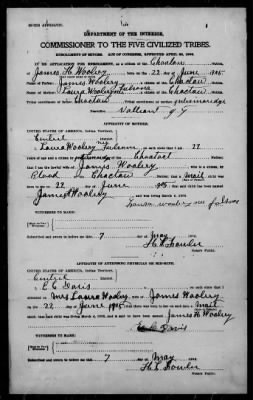 BIRTH AFFIDAVIT.
DEPARTMENT OF THE INTERIOR,
COMMISSIONER TO THE FIVE CIVILIZED TRIBES.
ENROLLMENT OF MINORS. ACT OF CONGRESS, APPROVED APRIL 26, 1906.
IN RE APPLICATION FOR ENROLLMENT, as a citizen of the Choctaw Nation, of
James H Woolery, born on the 22 day of June, 1905
Name of Father: James Woolery a citizen of the Choctaw Nation.
Name of Mother: Laura Woolery a citizen of the Choctaw Nation.
Tribal enrollment of father Choctaw Tribal enrollment of mother intermarriage
Postoffice Valliant I T
AFFIDAVIT OF MOTHER.
UNITED STATES OF AMERICA, Indian Territory,
Central District.
I, Laura Woolery, on oath state that I am 27
years of age and a citizen by intermarriage, of the Choctaw Nation;
that I am the lawful wife of James Woolery, who is a citizen, by
Blood of the Choctaw Nation; that a male child was born to me
on 22 day of June, 1905, that said child has been named
James H Woolery, and was living March 4, 1906.
WITNESSES TO MARK:
Subscribed and sworn to before me this 7 day of May, 1906.
H L Fowler
Notary Public.
AFFIDAVIT OF ATTENDING PHYSICIAN OR MID-WIFE.
UNITED STATES OF AMERICA, Indian Territory,
Central District.
I, E C Davis, on oath state that I
attended on Mrs Laura Woolery, wife of James Woolery
on the 22 day of June, 1905, that there was born to her on said date a male
child; that said child was living March 4, 1906, and is said to have been named James H Woolery
E C Davis
WITNESSES TO MARK:
Subscribed and sworn to before me this 7 day of May, 1906.
H L Fowler
Notary Public.